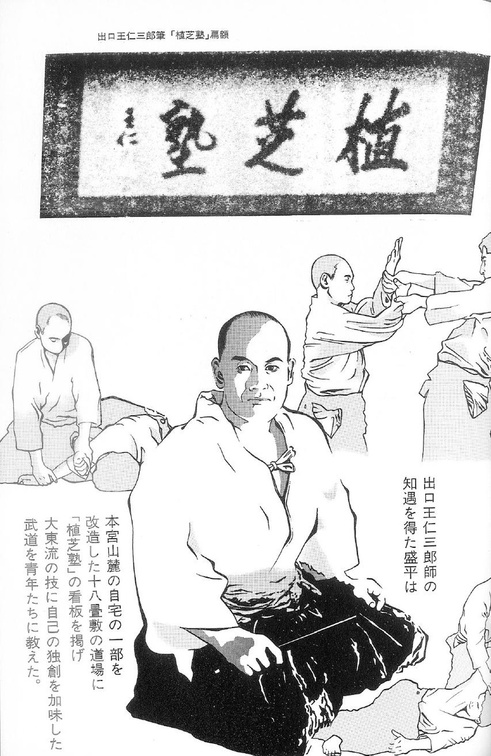 出口王仁三郎筆「植芝塾」扁額
植芝塾
王仁
出口王仁三郎師の
知遇を得た盛平は
本宮山麓の自宅の一部を
改造した十八畳敷の道場に
「植芝塾」の看板を掲げ
大東流の技に自己の独創を加味した
武道を青年たちに教えた。